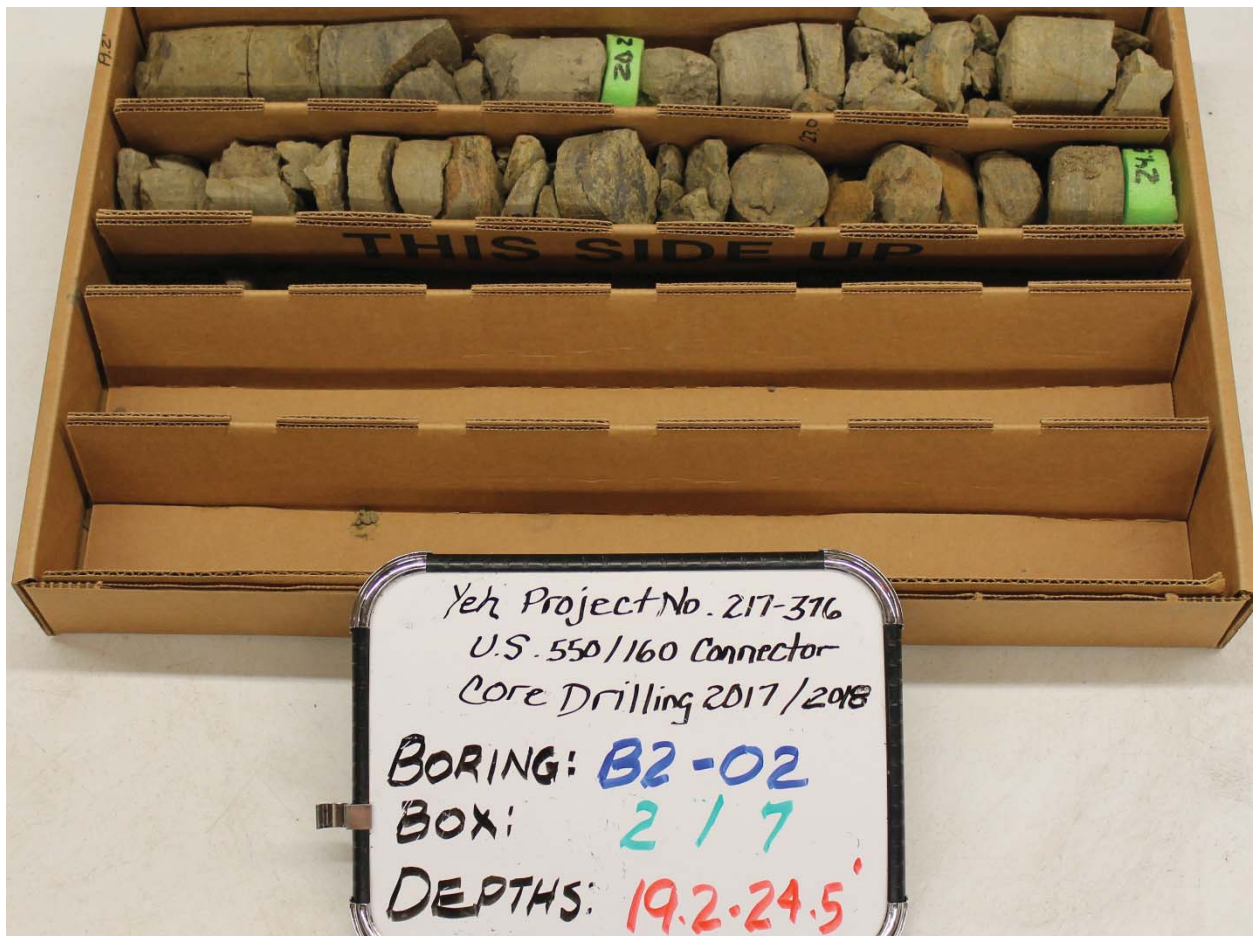 19.2'
20.2
23.0
24.5
THIS SIDE UP
Yeh Project No. 217-376
U.S. 550/160 Connector
Core Drilling 2017/2018
BORING: B2-02
BOX: 2 / 7
DEPTHS: 19.2-24.5'